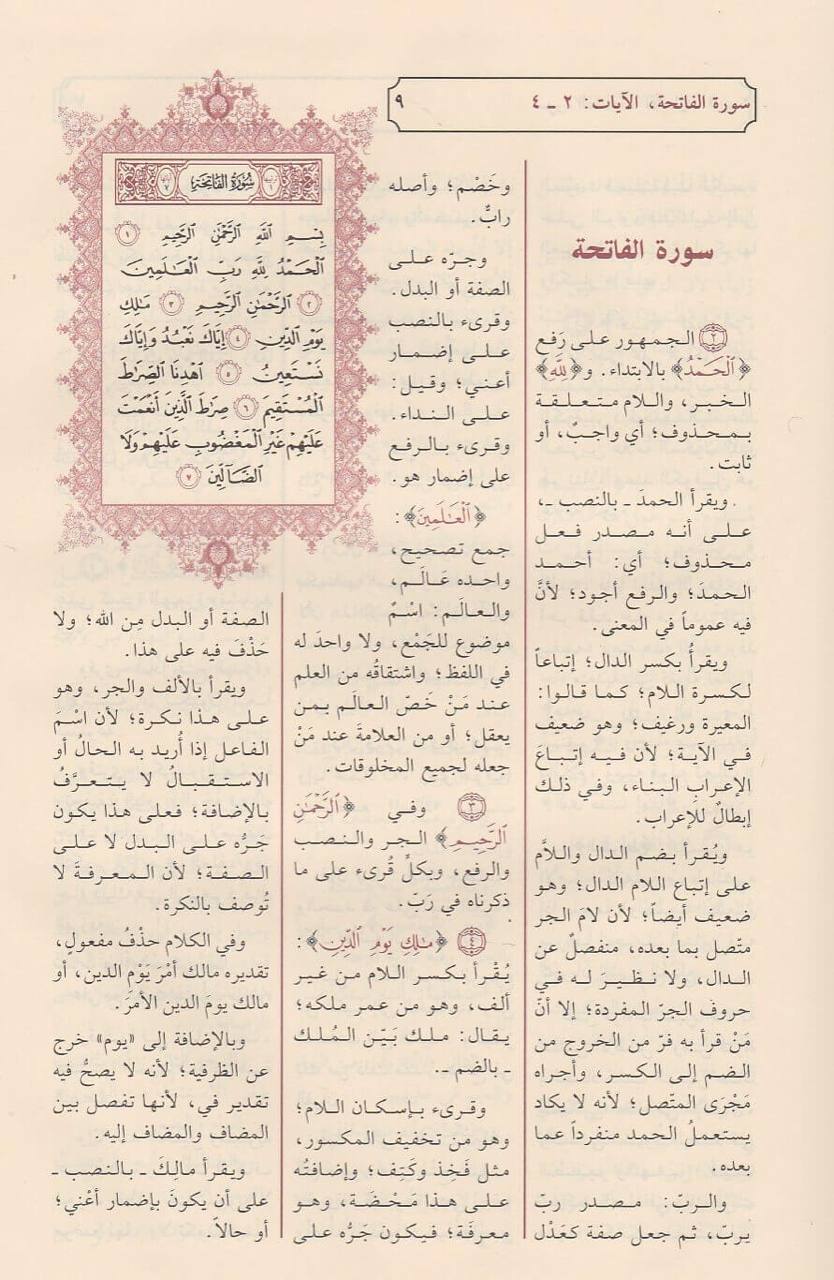 سورة الفاتحة، الآيات: ٢ - ٤
٩
سورة الفاتحة
٢ الجمهور على رَفع
﴿الْحَمْدُ﴾ بالابتداء. و﴿لِلَّهِ﴾
الخبر، واللام متعلقة
بمحذوف؛ أي واجبٌ، أو
ثابت.
ويقرأ الحمدَ - بالنصب -،
على أنه مصدر فعل
محذوف؛ أي: أحمد
الحمدَ؛ والرفع أجود؛ لأنَّ
فيه عموماً في المعنى.
ويقرأُ بكسر الدال؛ إتباعاً
لكسرة اللام؛ كما قالوا:
المعيرة ورغيف؛ وهو ضعيف
في الآية؛ لأن فيه إتباعَ
الإعرابِ البناء، وفي ذلك
إبطالٌ للإعراب.
ويُقرأ بضم الدال واللاَّم
على إتباع اللام الدال؛ وهو
ضعيف أيضاً؛ لأن لامَ الجر
متّصل بما بعده، منفصلٌ عن
الدال، ولا نظيرَ له في
حروف الجرّ المفردة؛ إلا أنّ
مَنْ قرأ به فرّ من الخروج من
الضم إلى الكسر، وأجراه
مَجْرَى المتّصل؛ لأنه لا يكاد
يستعملُ الحمد منفرداً عما
بعده.
والربّ: مصدر ربّ
يربّ، ثم جعل صفة كعَدْل
وخَصْم؛ وأصله
رابٌّ.
وجرّه على
الصفة أو البدل.
وقرىء بالنصب
على إضمار
أعني؛ وقيل:
على النداء.
وقرىء بالرفع
على إضمار هو.
﴿الْعَالَمِينَ﴾:
جمع تصحيح،
واحده عَالَم،
والعالَم: اسْمٌ
موضوع للجَمْع، ولا واحدَ له
في اللفظ؛ واشتقاقُه من العلم
عند مَنْ خَصّ العالَم بمن
يعقل؛ أو من العلامةَ عند مَنْ
جعله لجميع المخلوقات.
٣ وفي ﴿الرَّحْمَٰنِ
الرَّحِيمِ﴾ الجر والنصب
والرفع، وبكلٍّ قُرىء على ما
ذكرناه في رَبّ.
٤ ﴿مَٰلِكِ يَوْمِ الدِّينِ﴾:
يُقْرأ بكسر اللام من غير
ألف، وهو من عمر ملكه؛
يقال: ملك بَيّن المُلك
- بالضم -.
وقرىء بإسكان اللام؛
وهو من تخفيف المكسور،
مثل فَخِذ وكَتِف؛ وإضافتُه
على هذا مَحْضَة، وهو
معرفَة؛ فيكون جَرُّه على
سُورَةُ الفَاتِحَةِ
بِسْمِ اللَّهِ الرَّحْمَٰنِ الرَّحِيمِ ١
الْحَمْدُ لِلَّهِ رَبِّ الْعَالَمِينَ
٢ الرَّحْمَٰنِ الرَّحِيمِ ٣ مَالِكِ
يَوْمِ الدِّينِ ٤ إِيَّاكَ نَعْبُدُ وَإِيَّاكَ
نَسْتَعِينُ ٥ اهْدِنَا الصِّرَاطَ
الْمُسْتَقِيمَ ٦ صِرَاطَ الَّذِينَ أَنْعَمْتَ
عَلَيْهِمْ غَيْرِ الْمَغْضُوبِ عَلَيْهِمْ وَلَا
الضَّالِّينَ ٧
الصفة أو البدل مِن الله؛ ولا
حَذْفَ فيه على هذا.
ويقرأ بالألف والجر، وهو
على هذا نكرة؛ لأن اسْمَ
الفاعل إذا أُريد به الحالُ أو
الاستقبالُ لا يتعرَّفُ
بالإضافة؛ فعلى هذا يكون
جَرُّه على البدل لا على
الصفة؛ لأن المعرفةَ لا
تُوصف بالنكرة.
وفي الكلام حذْفُ مفعولٍ،
تقديره مالك أمْرَ يَوْم الدين، أو
مالك يومَ الدين الأمرَ.
وبالإضافة إلى «يوم» خرج
عن الظرفية؛ لأنه لا يصحُّ فيه
تقدير في، لأنها تفصل بين
المضاف والمضاف إليه.
ويقرأ مالِكَ - بالنصب -
على أن يكونَ بإضمار أعْني؛
أو حالاً.